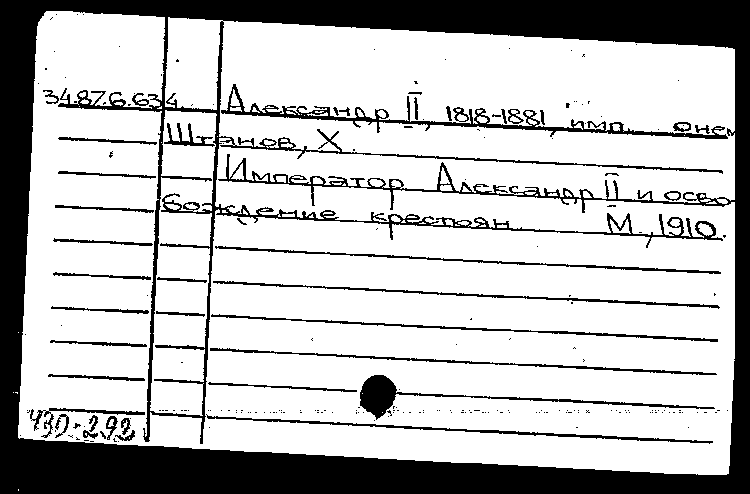 34.87.6.634 Александр II, 1818-1881, имп. о нем
Штанов, Х.
Император Александр II и осво-
бождение крестьян М., 1910.
ЧЗО-292